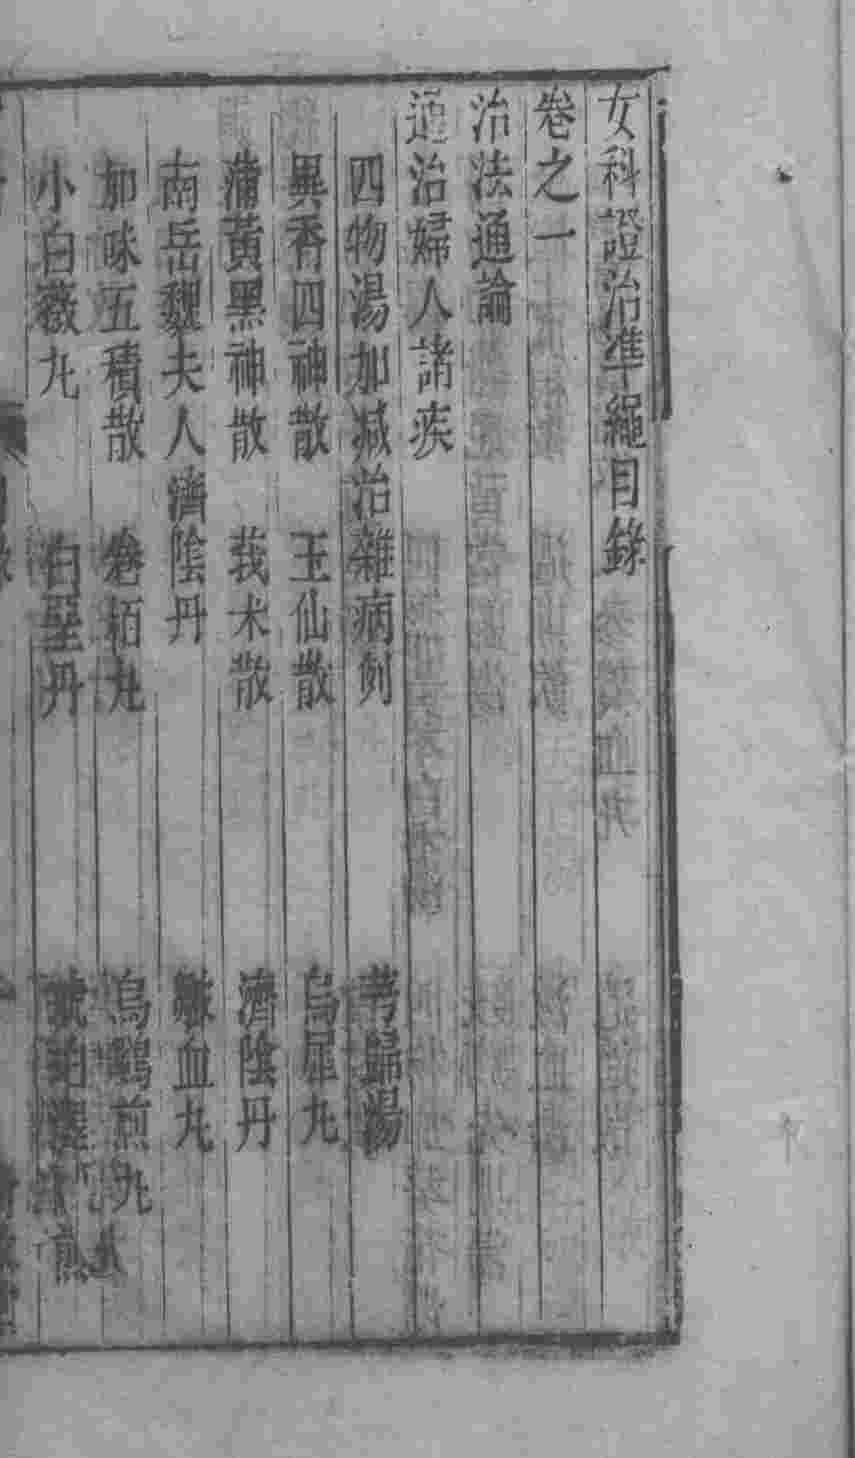 女科證治準繩目錄
卷之一
治法通論
通治婦人諸疾
四物湯加減治雜病例 芎歸湯
異香四神散 玉仙散 烏犀丸
蒲黃黑神散 莪朮散 濟陰丹
南岳魏夫人濟陰丹 血丸
加味五積散 卷栢丸 烏雞煎丸
小白薇丸 白堊丹 琥珀澤蘭煎